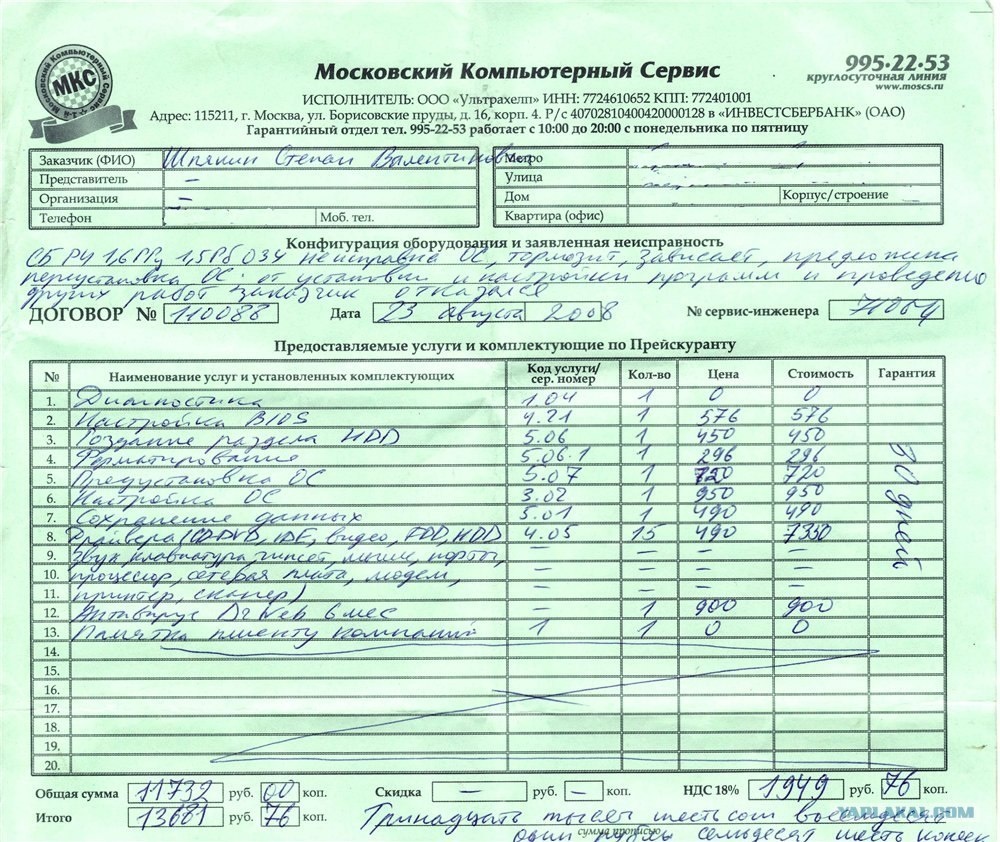 Московский Компьютерный Сервис 1-й
МКС
Московский Компьютерный Сервис
995•22•53
круглосуточная линия
www.moscs.ru
ИСПОЛНИТЕЛЬ: ООО «Ультрахелп» ИНН: 7724610652 КПП: 772401001
Адрес: 115211, г. Москва, ул. Борисовские пруды, д. 16, корп. 4. Р/с 40702810400420000128 в «ИНВЕСТСБЕРБАНК» (ОАО)
Гарантийный отдел тел. 995-22-53 работает с 10:00 до 20:00 с понедельника по пятницу
Заказчик (ФИО) Степан Валентинович
Представитель —
Организация —
Телефон Моб. тел.
Метро
Улица
Дом Корпус/строение
Квартира (офис)
Конфигурация оборудования и заявленная неисправность
СБ P4 1,6 ГГц 1,5Гб ОЗУ неисправна ОС, тормозит, зависает, предложена
переустановка ОС. от установки и настройки программ и проведению
других работ заказчик отказался
ДОГОВОР № 110088 Дата 23 августа 2008 № сервис-инженера 71069
Предоставляемые услуги и комплектующие по Прейскуранту
№ Наименование услуг и установленных комплектующих Код услуги/ сер. номер Кол-во Цена Стоимость Гарантия
1. Диагностика 1.04 1 0 0
2. Настройка BIOS 4.21 1 576 576
3. Создание раздела HDD 5.06 1 450 450
4. Форматирование 5.06.1 1 296 296
5. Предустановка ОС 5.07 1 720 720
6. Настройка ОС 3.02 1 950 950
7. Сохранение данных 5.01 1 490 490
8. Драйвера (CD-DVD, IDE, видео, FDD, HDD 4.05 15 490 7350
9. Звук, клавиатура, чипсет, мышь, порты, — — — —
10. процессор, сетевая плата, модем, — — — —
11. принтер, сканер) — — — —
12. Антивирус DrWeb 6 мес — 1 900 900
13. Памятка клиенту компании 1 1 0 0
30 дней
14.
15.
16.
17.
18.
19.
20.
Общая сумма 11732 руб. 00 коп. Скидка — руб. — коп. НДС 18% 1949 руб. 76 коп.
Итого 13681 руб. 76 коп. Тринадцать тысяч шестьсот восемьдесят
сумма прописью
один рубль семьдесят шесть копеек
YAPLAKAL.COM